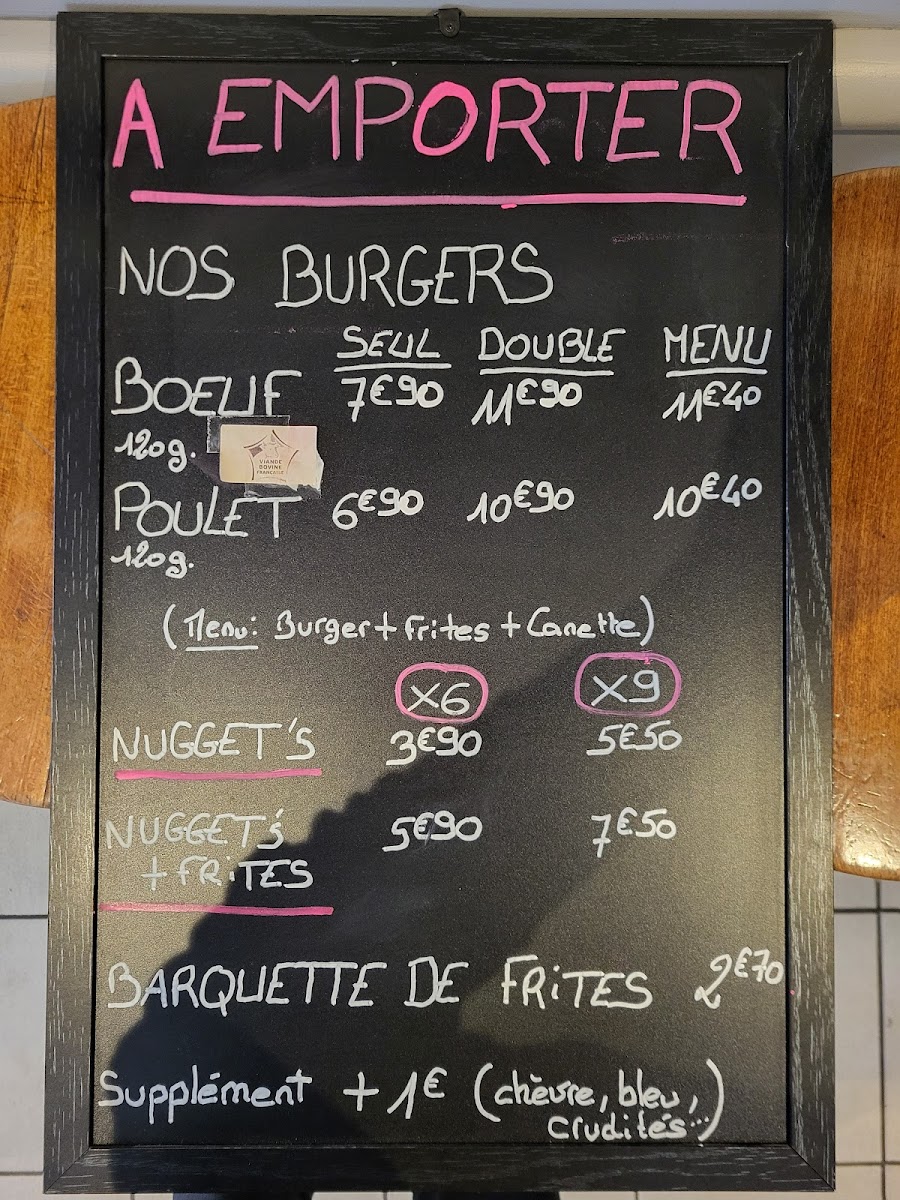 A EMPORTER
NOS BURGERS
SEUL DOUBLE MENU
BOEUF 7€90 11€90 11€40
120g.
VIANDE
BOVINE
FRANÇAISE
POULET 6€90 10€90 10€40
120g.
(Menu: Burger + Frites + Canette)
X6 X9
NUGGET'S 3€90 5€50
NUGGET'S 5€90 7€50
+ FRITES
BARQUETTE DE FRITES 2€70
Supplément + 1€ (chèvre, bleu,
crudités...)